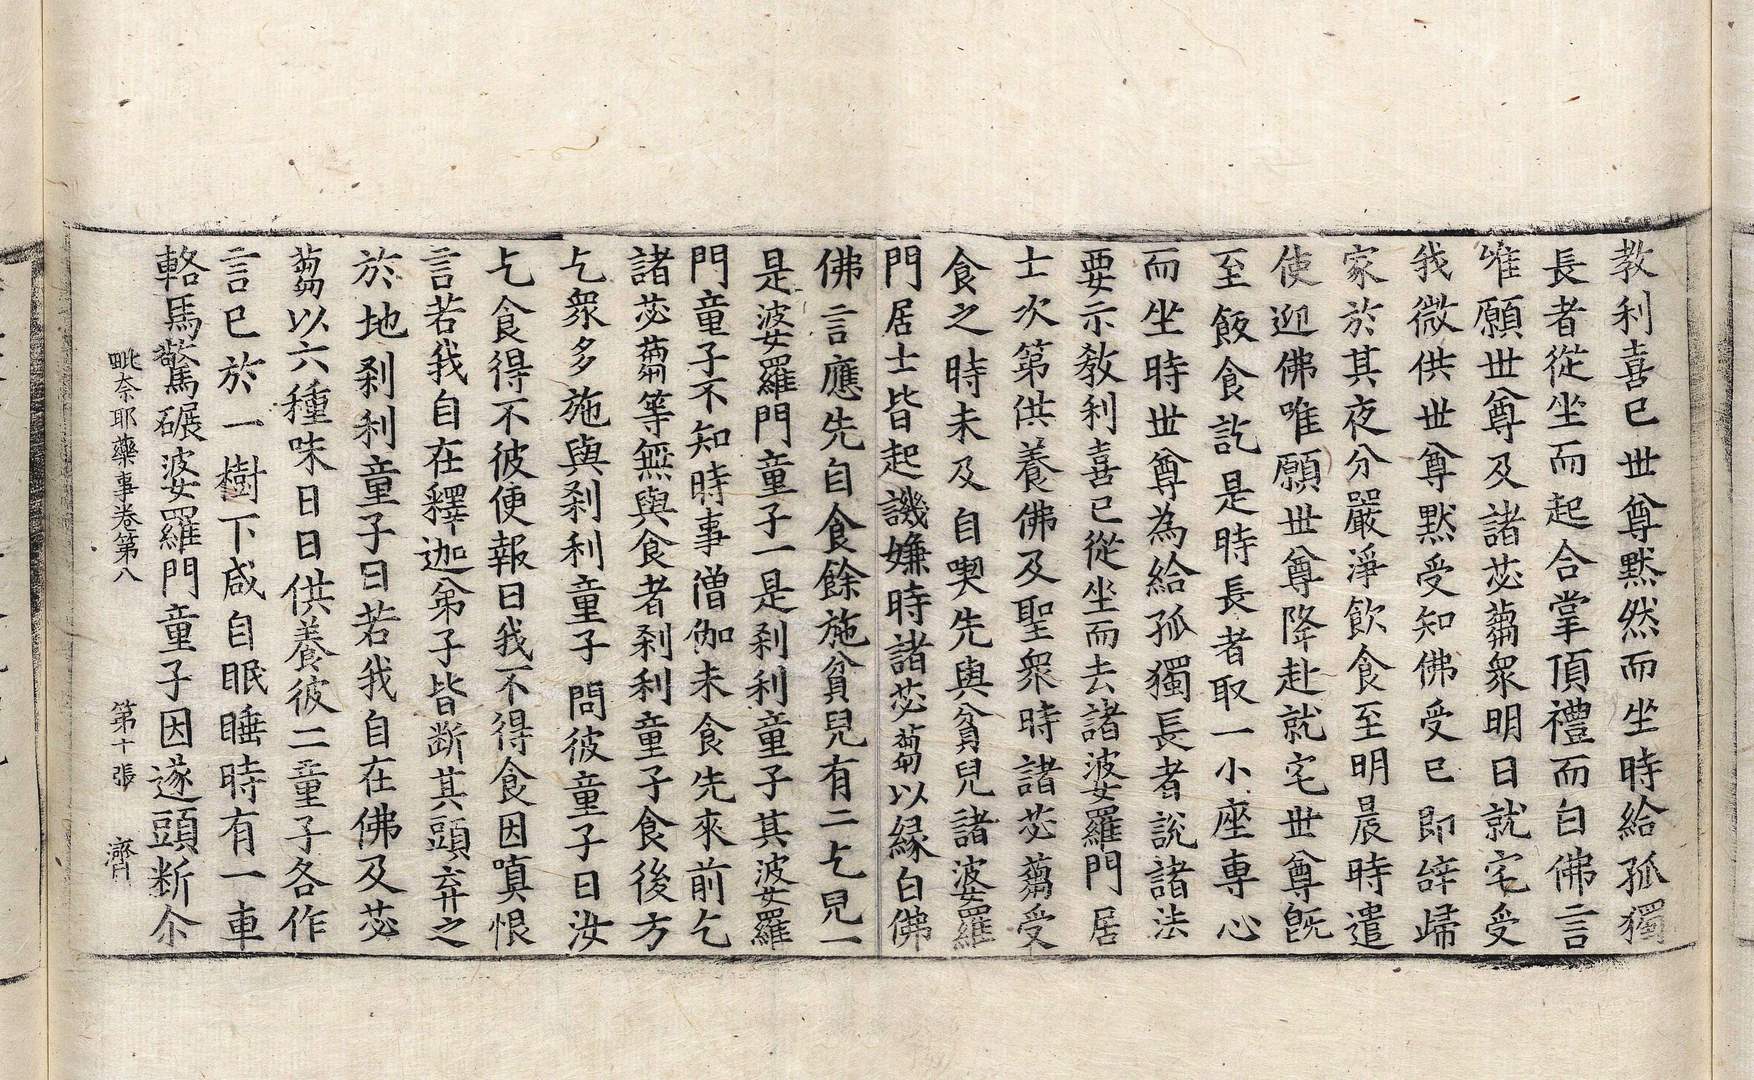 教利喜已世尊黙然而坐時給孤獨
長者從坐而起合掌頂禮而白佛言
唯願世尊及諸苾蒭衆明日就宅受
我微供世尊黙受知佛受已即辝歸
家於其夜分嚴淨飲食至明晨時遣
使迎佛唯願世尊降赴就宅世尊旣
至飯食訖是時長者取一小座專心
而坐時世尊為給孤獨長者說諸法
要示教利喜已從坐而去諸婆羅門居
士次第供養佛及聖衆時諸苾蒭受
食之時未及自喫先與貧兒諸婆羅
門居士皆起譏嫌時諸苾蒭以緣白佛
佛言應先自食餘施貧兒有二乞兒一
是婆羅門童子一是刹利童子其婆羅
門童子不知時事僧伽未食先來前乞
諸苾蒭等無與食者刹利童子食後方
乞衆多施與刹利童子問彼童子曰汝
乞食得不彼便報曰我不得食因嗔恨
言若我自在釋迦弟子皆斷其頭弃之
於地刹利童子曰若我自在佛及苾
蒭以六種味日日供養彼二童子各作
言已於一樹下咸自眠睡時有一車
輅馬驚碾婆羅門童子因遂頭断尒
毗奈耶藥事卷第八 第十張 濟